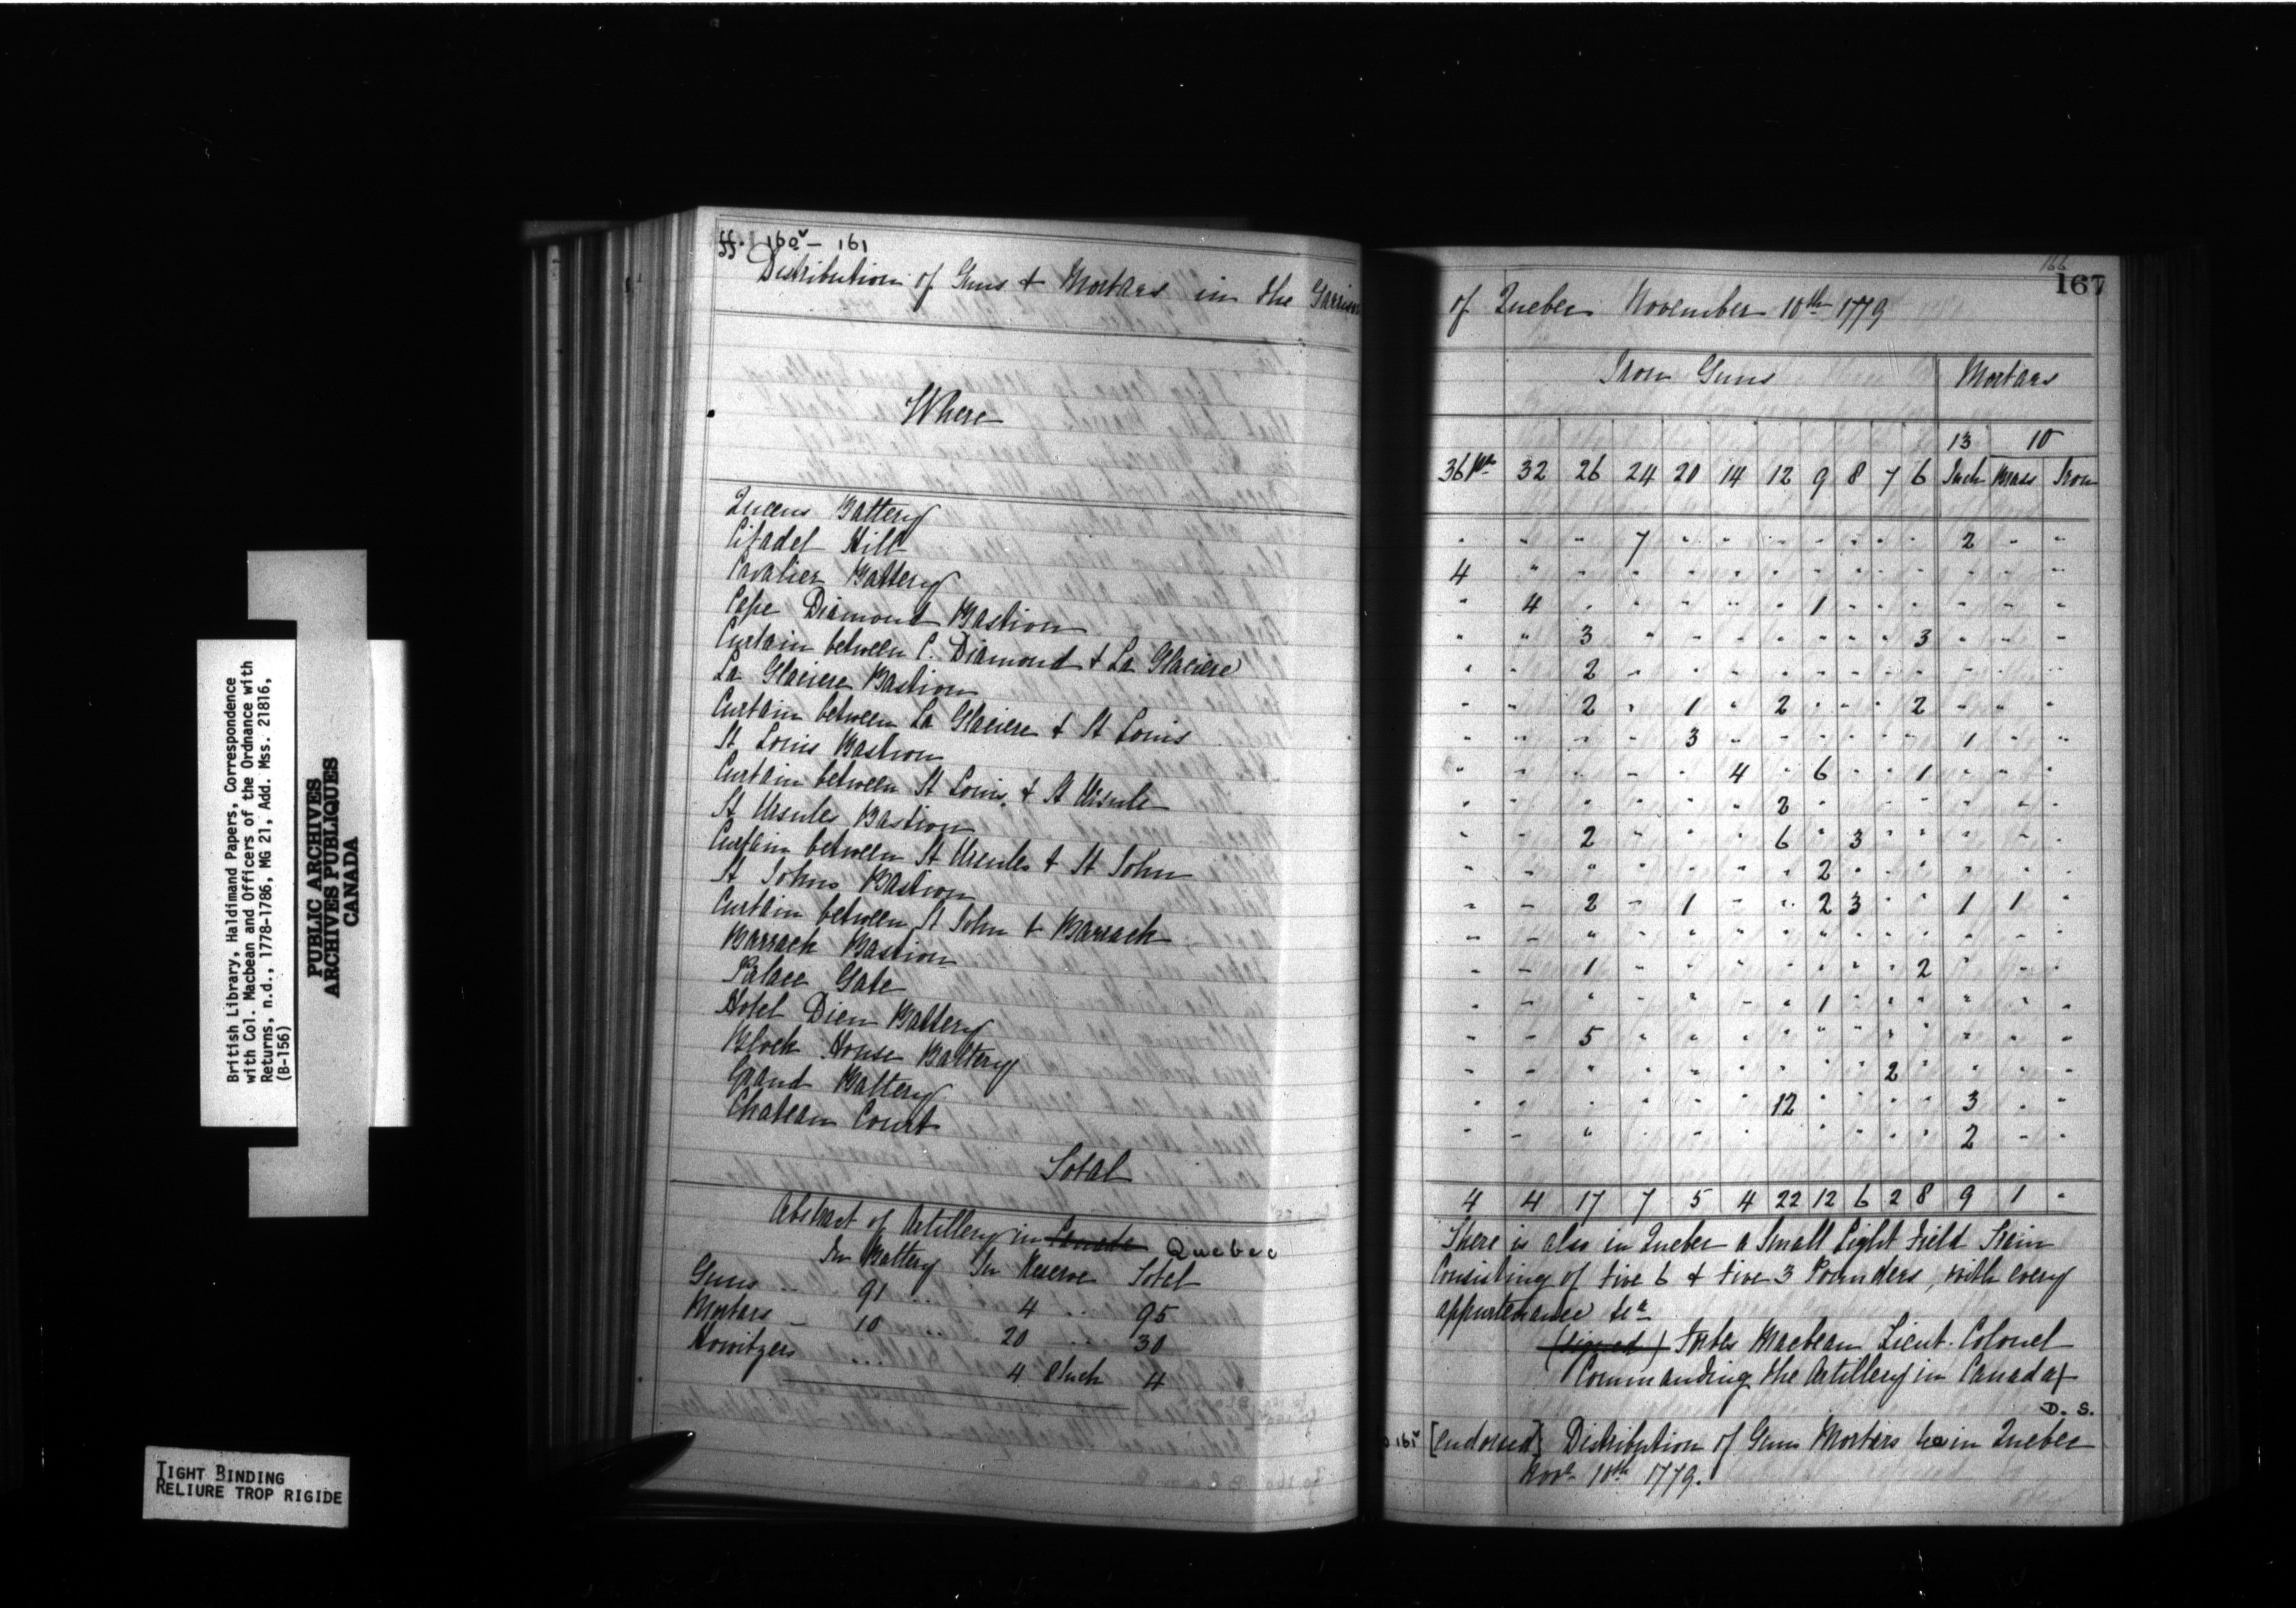 British Library, Haldimand Papers, Correspondence
with Col. Macbean and Officers of the Ordnance with
Returns, n.d., 1778-1786, MG 21, Add. Mss. 21816,
(B-156)
PUBLIC ARCHIVES
ARCHIVES PUBLIQUES
CANADA
TIGHT BINDING
RELIURE TROP RIGIDE
ff. 160v - 161
Distribution of Guns & Mortars in the Garrison
Where
Queens Battery
Citadel Hill
Cavalier Battery
Cape Diamond Bastion
Curtain between C. Diamond & La Glaciere
La Glaciere Bastion
Curtain between La Glaciere & St Louis
St Louis Bastion
Curtain between St Louis & St Ursule
St Ursules Bastion
Curtain between St Ursules & St John
St Johns Bastion
Curtain between St John & Barrack
Barrack Bastion
Palace Gate
Hotel Dieu Battery
Block House Battery
Grand Battery
Chateau Court
Total
Abstract of Artillery in Canada Quebec
In Battery In Reserve Total
Guns .. 91 ... 4 .. 95
Mortars - 10 ... 20 .. 30
Howitzers ... 4 8 Inch 4
166
167
of Quebec November 10th 1779
Iron Guns Mortars
13 10
36 Pr 32 26 24 20 14 12 9 8 7 6 Inch Brass Iron
" " " 7 " " " " " " " 2 " "
4 " " " " " " " " " " " " "
" 4 " " " " " 1 " " " " " "
" " 3 " " " " " " " 3 " " "
" " 2 " " " " " " " " " " "
" " 2 " 1 " 2 " " " 2 " " "
" " " " 3 " " " " " " 1 " "
" " " " " 4 " 6 " " 1 " " "
" " " " " " 2 " " " " " " "
" " 2 " " " 6 " 3 " " " " "
" " " " " " " 2 " " " " " "
" " 2 " 1 " " 2 3 " " 1 1 "
" " " " " " " " " " " " " "
" " 1 " " " " " " " 2 " " "
" " " " " " " 1 " " " " " "
" " 5 " " " " " " " " " " "
" " " " " " " " " 2 " " " "
" " " " " " 12 " " " " 3 " "
" " " " " " " " " " " 2 " "
4 4 17 7 5 4 22 12 6 2 8 9 1 "
There is also in Quebec a Small Light Field Train
Consisting of five 6 & five 3 Pounders, with every
appurtenance &ca
(signed) Forbes Macbean Lieut. Colonel
Commanding the Artillery in Canada
D. S.
[endorsed] Distribution of Guns Mortars &c in Quebec
Novr 10th 1779.